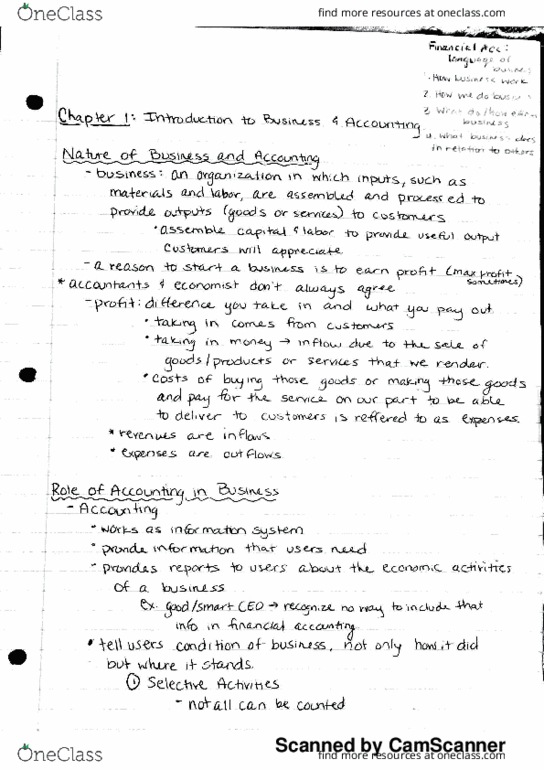 OneClass
find more resources at oneclass.com
Financial Acc:
language of
1. How business work
2. How we do
business
4. what business does
in relation to others
Chapter 1: Introduction to Business & Accounting
Nature of Business and Accounting
- business: an organization in which inputs, such as
materials and labor, are assembled and processed to
provide outputs (goods or services) to customers
• assemble capital & labor to provide useful output
customers will appreciate
- a reason to start a business is to earn profit (max profit
sometimes)
* accountants & economist don't always agree
- profit: difference you take in and what you pay out
• taking in comes from customers
• taking in money → inflow due to the sale of
goods/products or services that we render.
• costs of buying those goods or making those goods
and pay for the service on our part to be able
to deliver to customers is reffered to as expenses.
* revenues are inflows
* expenses are outflows
Role of Accounting in Business
- Accounting
• works as information system
• provide information that users need
• provides reports to users about the economic activities
of a business
ex. good/smart CEO → recognize no way to include that
info in financial accounting
• tell users condition of business, not only how it did
but where it stands.
① Selective Activities
- not all can be counted
Scanned by CamScanner
OneClass
find more resources at oneclass.com